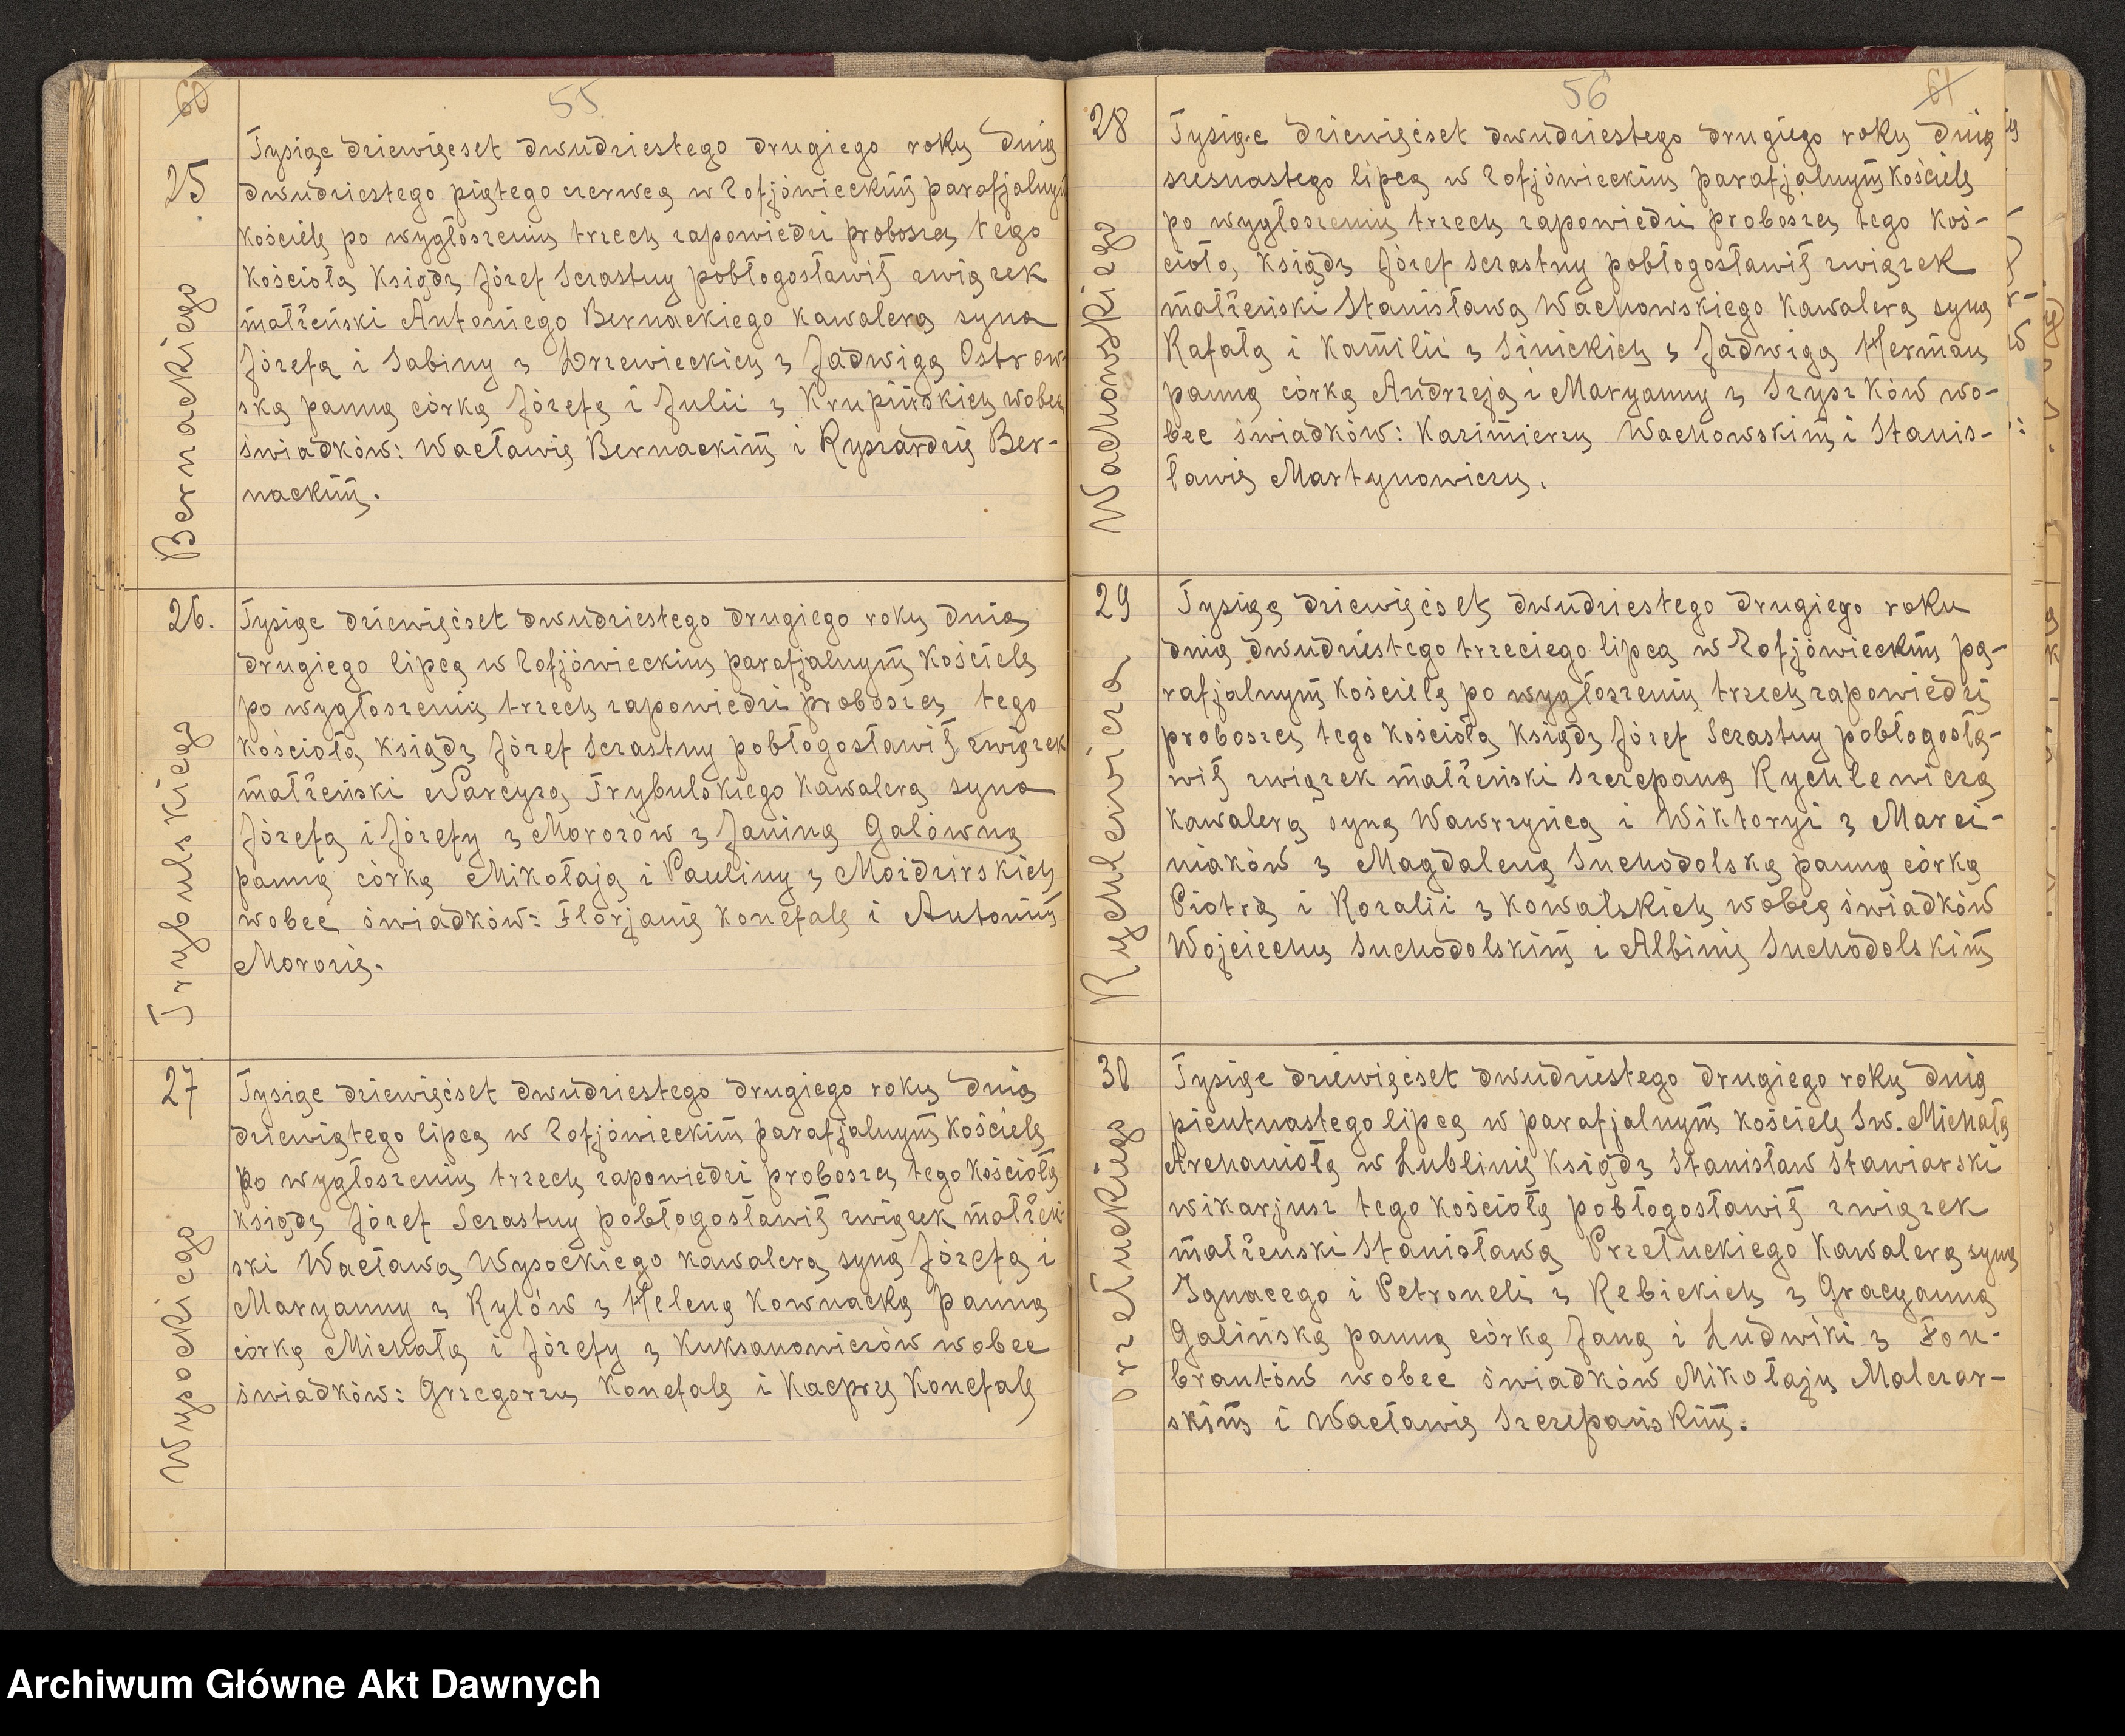 60
55
25
Bernackiego
Tysiąc dziewięćset dwudziestego drugiego roku dnia
dwudziestego piątego czerwca w Zofjówieckim parafjalnym
kościele po wygłoszeniu trzech zapowiedzi proboszcz tego
kościoła ksiądz Józef Szastny pobłogosławił związek
małżeński Antoniego Bernackiego kawalera syna
Józefa i Sabiny z Drzewieckich z Jadwigą Ostrow-
ską panną córką Józefa i Julii z Krupińskich wobec
świadków: Wacławie Bernackim i Ryszardzie Ber-
nackim.
26.
Trybulskiego
Tysiąc dziewięćset dwudziestego drugiego roku dnia
drugiego lipca w Zofjówieckim parafjalnym kościele
po wygłoszeniu trzech zapowiedzi proboszcz tego
kościoła ksiądz Józef Szastny pobłogosławił związek
małżeński Narcyza Trybulskiego kawalera syna
Józefa i Józefy z Morozów z Janiną Galówną
panną córką Mikołaja i Pauliny z Moździrskich
wobec świadków: Florjanie Konefale i Antonim
Morozie.
27
Wysockiego
Tysiąc dziewięćset dwudziestego drugiego roku dnia
dziewiątego lipca w Zofjówieckim parafjalnym kościele
po wygłoszeniu trzech zapowiedzi proboszcz tego kościoła
ksiądz Józef Szastny pobłogosławił związek małżeń-
ski Wacława Wysockiego kawalera syna Józefa i
Maryanny z Rylów z Heleną Kownacką panną
córką Michała i Józefy z Kuksanowiczów wobec
świadków: Grzegorzu Konefale i Kacprze Konefale
56
61
28
Wachowskiego
Tysiąc dziewięćset dwudziestego drugiego roku dnia
szesnastego lipca w Zofjówieckim parafjalnym kościele
po wygłoszeniu trzech zapowiedzi proboszcz tego koś-
cioła, ksiądz Józef Szastny pobłogosławił związek
małżeński Stanisława Wachowskiego kawalera syna
Rafała i Kamilii z Sinickich z Jadwigą Herman
panną córką Andrzeja i Maryanny z Szyszków wo-
bec świadków: Kazimierzu Wachowskim i Stanis-
ławie Martynowiczu.
29
Rychlewicza
Tysiąc dziewięćset dwudziestego drugiego roku
dnia dwudziestego trzeciego lipca w Zofjówieckim pa-
rafjalnym kościele po wygłoszeniu trzech zapowiedzi
proboszcz tego kościoła ksiądz Józef Szastny pobłogosła-
wił związek małżeński Szczepana Rychlewicza
kawalera syna Wawrzyńca i Wiktoryi z Marci-
niaków z Magdaleną Suchodolską panną córką
Piotra i Rozalii z Kowalskich wobec świadków
Wojciechu Suchodolskim i Albinie Suchodolskim
30
Przełuckiego
Tysiąc dziewięćset dwudziestego drugiego roku dnia
pientnastego lipca w parafjalnym kościele Św. Michała
Archanioła w Lublinie ksiądz Stanisław Stawiarski
wikarjusz tego kościoła pobłogosławił związek
małżenski Stanisława Przełuckiego kawalera syna
Ignacego i Petroneli z Rebickich z Gracyanną
Galińską panną córką Jana i Ludwiki z Fon-
brantów wobec świadków Mikołaju Malczar-
skim i Wacławie Szczepańskim.
Archiwum Główne Akt Dawnych